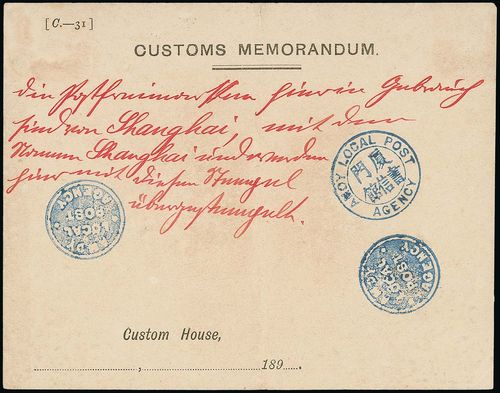 [C.—31]
CUSTOMS MEMORANDUM.
die Postfreimarken hier in Gebrauch
sind von Shanghai, mit dem
Namen Shanghai und werden
hier mit diesem Stempel
übergestempelt.
AMOY LOCAL POST
厦門
書信館
AGENCY
AMOY
LOCAL
POST
AGENCY
AMOY
LOCAL
POST
AGENCY
Custom House,
189